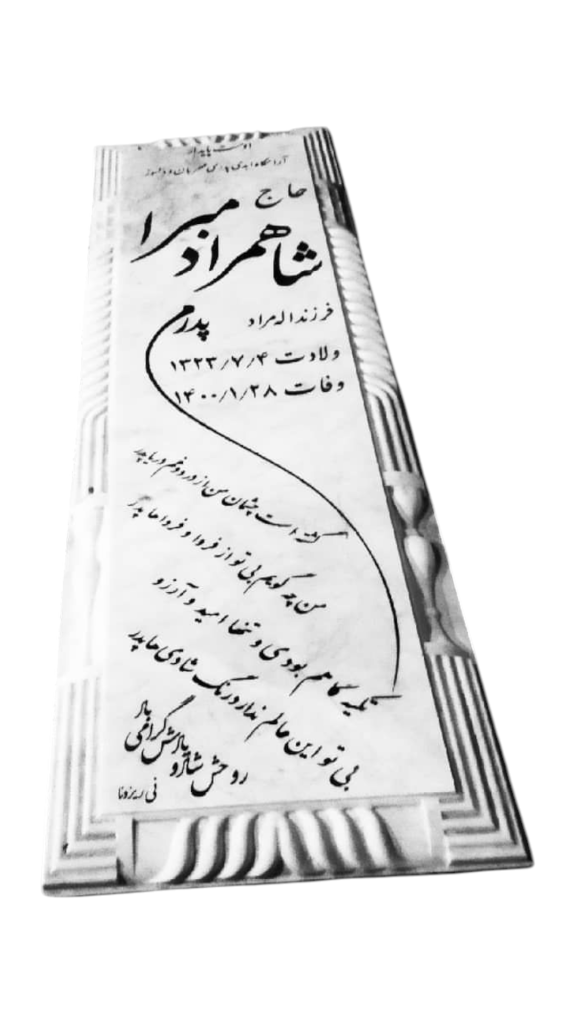 اوست پایدار
آرامگاه ابدی پدری مهربان و دلسوز
حاج
شاهمراد میرا
فرزند اله مراد
پدرم
ولادت ۱۳۲۳/۷/۴
وفات ۱۴۰۰/۱/۲۸
گشته است چشمان من از درد و غم دریا پدر
من چه گویم بی تو از فردا و فرداها پدر
تکیه گاهم بودی و تنها امید و آرزو
بی تو این عالم ندارد رنگ شادی ها پدر
روحش شاد و یادش گرامی باد